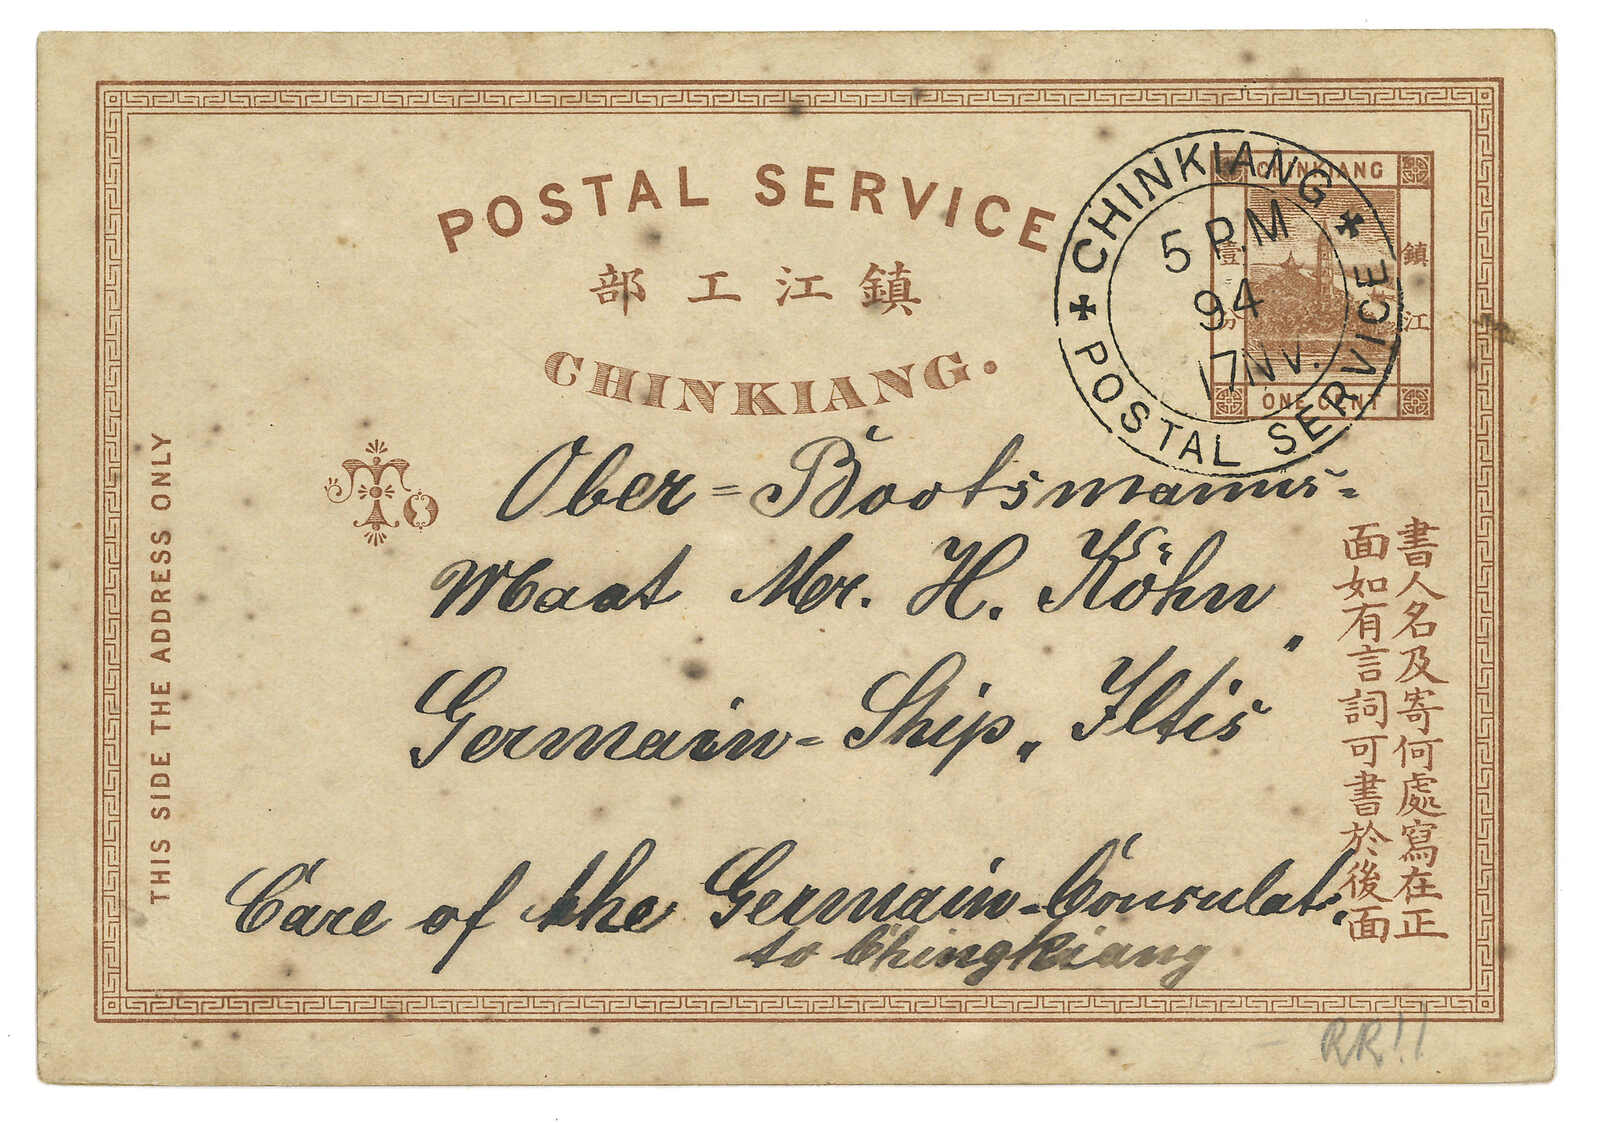 POSTAL SERVICE
部工江鎮
CHINKIANG.
CHINKIANG
壹
鎮江
ONE CENT
CHINKIANG
POSTAL SERVICE
5 P.M
94
17 NV.
THIS SIDE THE ADDRESS ONLY
To
Ober=Bootsmanns=
Maat Mr. H. Köhn,
Germain-Ship „Iltis"
Care of the Germain-Consulat.
to Chingkiang
書人名及寄何處寫在正
面如有言詞可書於後面
RR!!